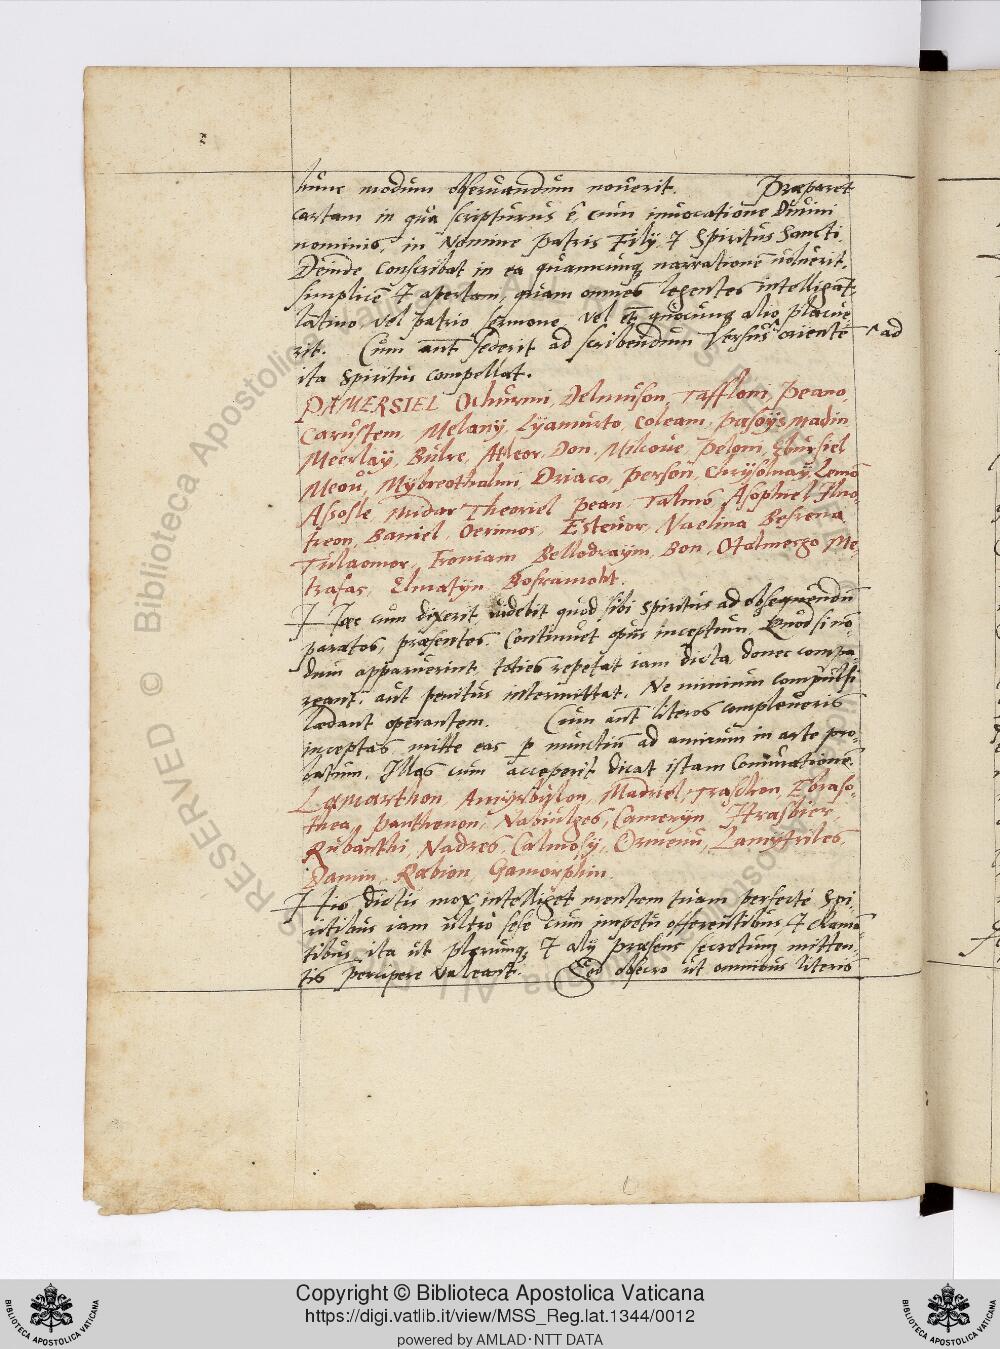 hunc modum obseruandum nouerit. Præparet
cartam in qua scripturus ē, cum inuocatione Diuini
nominis in Nomine Patris Filÿ, & Spiritus Sancti.
Deinde conscribat in ea quamcunq narrationē uoluerit,
simplicē & apertam, quam omnes legentes intelligāt,
latino vel patrio sermone, vel et quocunq alio placue
rit. Cum ant sederit ad scribendum ^ Versus orientē ^ ad
ita Spiritus compellat.
PAMERSIEL Ochurmi, Delmuson, Tafflom, Peano,
Carustem, Melany, Lyamurto, Coleam, Pasoÿs Madin
Meerlaÿ, Bulre, Atleor, Don, Milcoue, Pelom, Ebursiel
Meou, Mÿbreothalmi, Driaco, Person, Chrÿsolnaÿ, Lemo
Assosle, Midar Theoriel Pean, Talmo, Asophiel Ilno-
treon, Baniel, Ocrimos, Esteuor, Naelina Besrena
Tulaomor, Froniam Bellodraÿm, Bon, Otalmesgo Me-
trafas, Elmatÿn Bosramoht.
Hæc cum dixerit, uidebit quod sibi Spiritus ad obsequendū
paratos, præsentes. Continuet opus inceptum. Quod si nō
dum apparuerint, toties repetat iam dicta, donec compa
reant, aut penitus intermittat, Ne nimium compulsi
lædant operantem. Cum ant literas compleueris
inceptas, mitte eas p nunctiū ad amicum in arte pro-
batum, Illas cum acceperit dicat istam Coniurationē.
Lamarthon, Amÿrbÿlon, Madriel, Traschon, Ebraso-
thea, Panthenon, Nabrulges, Camerÿn, Itrasbier,
Rubanthi, Nadres, Calmosÿ, Ormenu, Lamÿtriles,
Damin, Rabion, Hamorphin.
His dictis mox intelliget mentem tuam perfecté Spi
ritibus iam ultro sese cum impetu offerentibus, & clamā
tibus, ita ut plerunq, & alÿ præsens secretum mitten
tis percipere valeant. Sed obsecro ut omnibus literis
Copyright © Biblioteca Apostolica Vaticana
https://digi.vatlib.it/view/MSS_Reg.lat.1344/0012
powered by AMLAD·NTT DATA
BIBLIOTECA APOSTOLICA VATICANA
BIBLIOTECA APOSTOLICA VATICANA